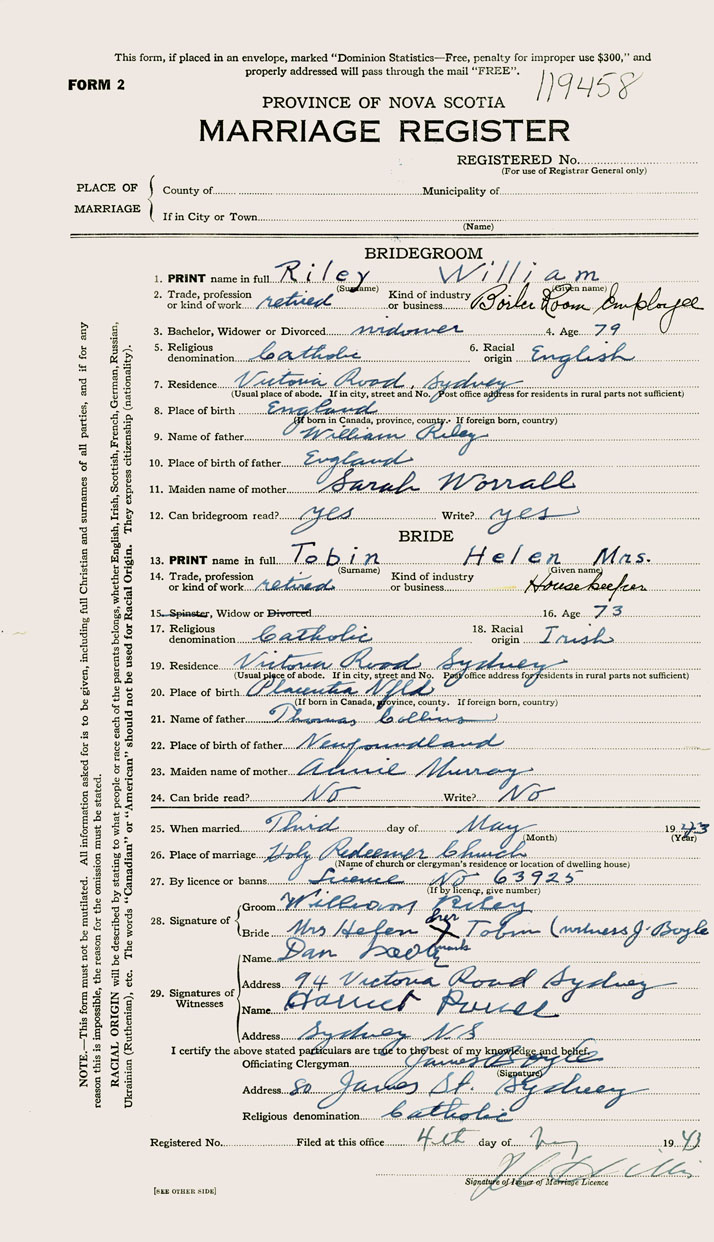 This form, if placed in an envelope, marked "Dominion Statistics—Free, penalty for improper use $300," and
properly addressed will pass through the mail "FREE".
FORM 2
119458
PROVINCE OF NOVA SCOTIA
MARRIAGE REGISTER
REGISTERED No.
(For use of Registrar General only)
PLACE OF MARRIAGE
County of Municipality of
If in City or Town
(Name)
BRIDEGROOM
1. PRINT name in full Riley William
(Surname) (Given name)
2. Trade, profession or kind of work retired Kind of industry or business Boiler Room Employee
3. Bachelor, Widower or Divorced widower 4. Age 79
5. Religious denomination Catholic 6. Racial origin English
7. Residence Victoria Road, Sydney
(Usual place of abode. If in city, street and No. Post office address for residents in rural parts not sufficient)
8. Place of birth England
(If born in Canada, province, county. If foreign born, country)
9. Name of father William Riley
10. Place of birth of father England
11. Maiden name of mother Sarah Worrall
12. Can bridegroom read? yes Write? yes
BRIDE
13. PRINT name in full Tobin Helen Mrs.
(Surname) (Given name)
14. Trade, profession or kind of work retired Kind of industry or business Housekeeper
15. Spinster, Widow or Divorced 16. Age 73
17. Religious denomination Catholic 18. Racial origin Irish
19. Residence Victoria Road Sydney
(Usual place of abode. If in city, street and No. Post office address for residents in rural parts not sufficient)
20. Place of birth Placentia Nfld
(If born in Canada, province, county. If foreign born, country)
21. Name of father Thomas Collins
22. Place of birth of father Newfoundland
23. Maiden name of mother Annie Murray
24. Can bride read? No Write? No
25. When married Third day of May 1943
(Month) (Year)
26. Place of marriage Holy Redeemer Church
(Name of church or clergyman's residence or location of dwelling house)
27. By licence or banns Licence No 63925
(If by licence, give number)
28. Signature of
Groom William Riley
Bride Mrs Helen her X mark Tobin (witness J. Boyle
29. Signatures of Witnesses
Name Dan
Address 94 Victoria Road Sydney
Name Harriet
Address Sydney N.S
I certify the above stated particulars are true to the best of my knowledge and belief.
Officiating Clergyman James Boyle
(Signature)
Address 80 James St. Sydney
Religious denomination Catholic
Registered No. Filed at this office 4th day of May 1943
Signature of Issuer of Marriage Licence
[SEE OTHER SIDE]
NOTE.—This form must not be mutilated. All information asked for is to be given, including full Christian and surnames of all parties, and if for any
reason this is impossible, the reason for the omission must be stated.
RACIAL ORIGIN will be described by stating to what people or race each of the parents belongs, whether English, Irish, Scottish, French, German, Russian,
Ukrainian (Ruthenian), etc. The words "Canadian" or "American" should not be used for Racial Origin. They express citizenship (nationality).